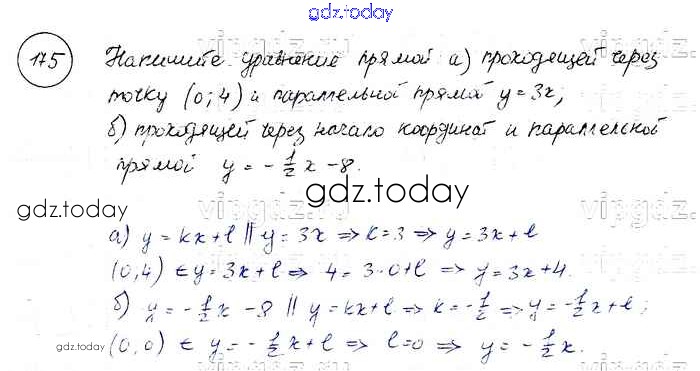 gdz.today
175 Напишите уравнение прямой а) проходящей через
точку (0; 4) и параллельной прямой y = 3x;
б) проходящей через начало координат и параллельной
прямой y = -1/2 x - 8.
gdz.today
gdz.today
а) y = kx + l || y = 3x ⇒ k = 3 ⇒ y = 3x + l
(0, 4) ∈ y = 3x + l ⇒ 4 = 3·0 + l ⇒ y = 3x + 4.
б) y = -1/2 x - 8 || y = kx + l ⇒ k = -1/2 ⇒ y = -1/2 x + l;
gdz.today
(0, 0) ∈ y = -1/2 x + l ⇒ l = 0 ⇒ y = -1/2 x.
gdz.today